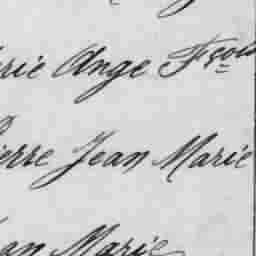 arie Ange Fçois
ierre Jean Marie
ean Marie